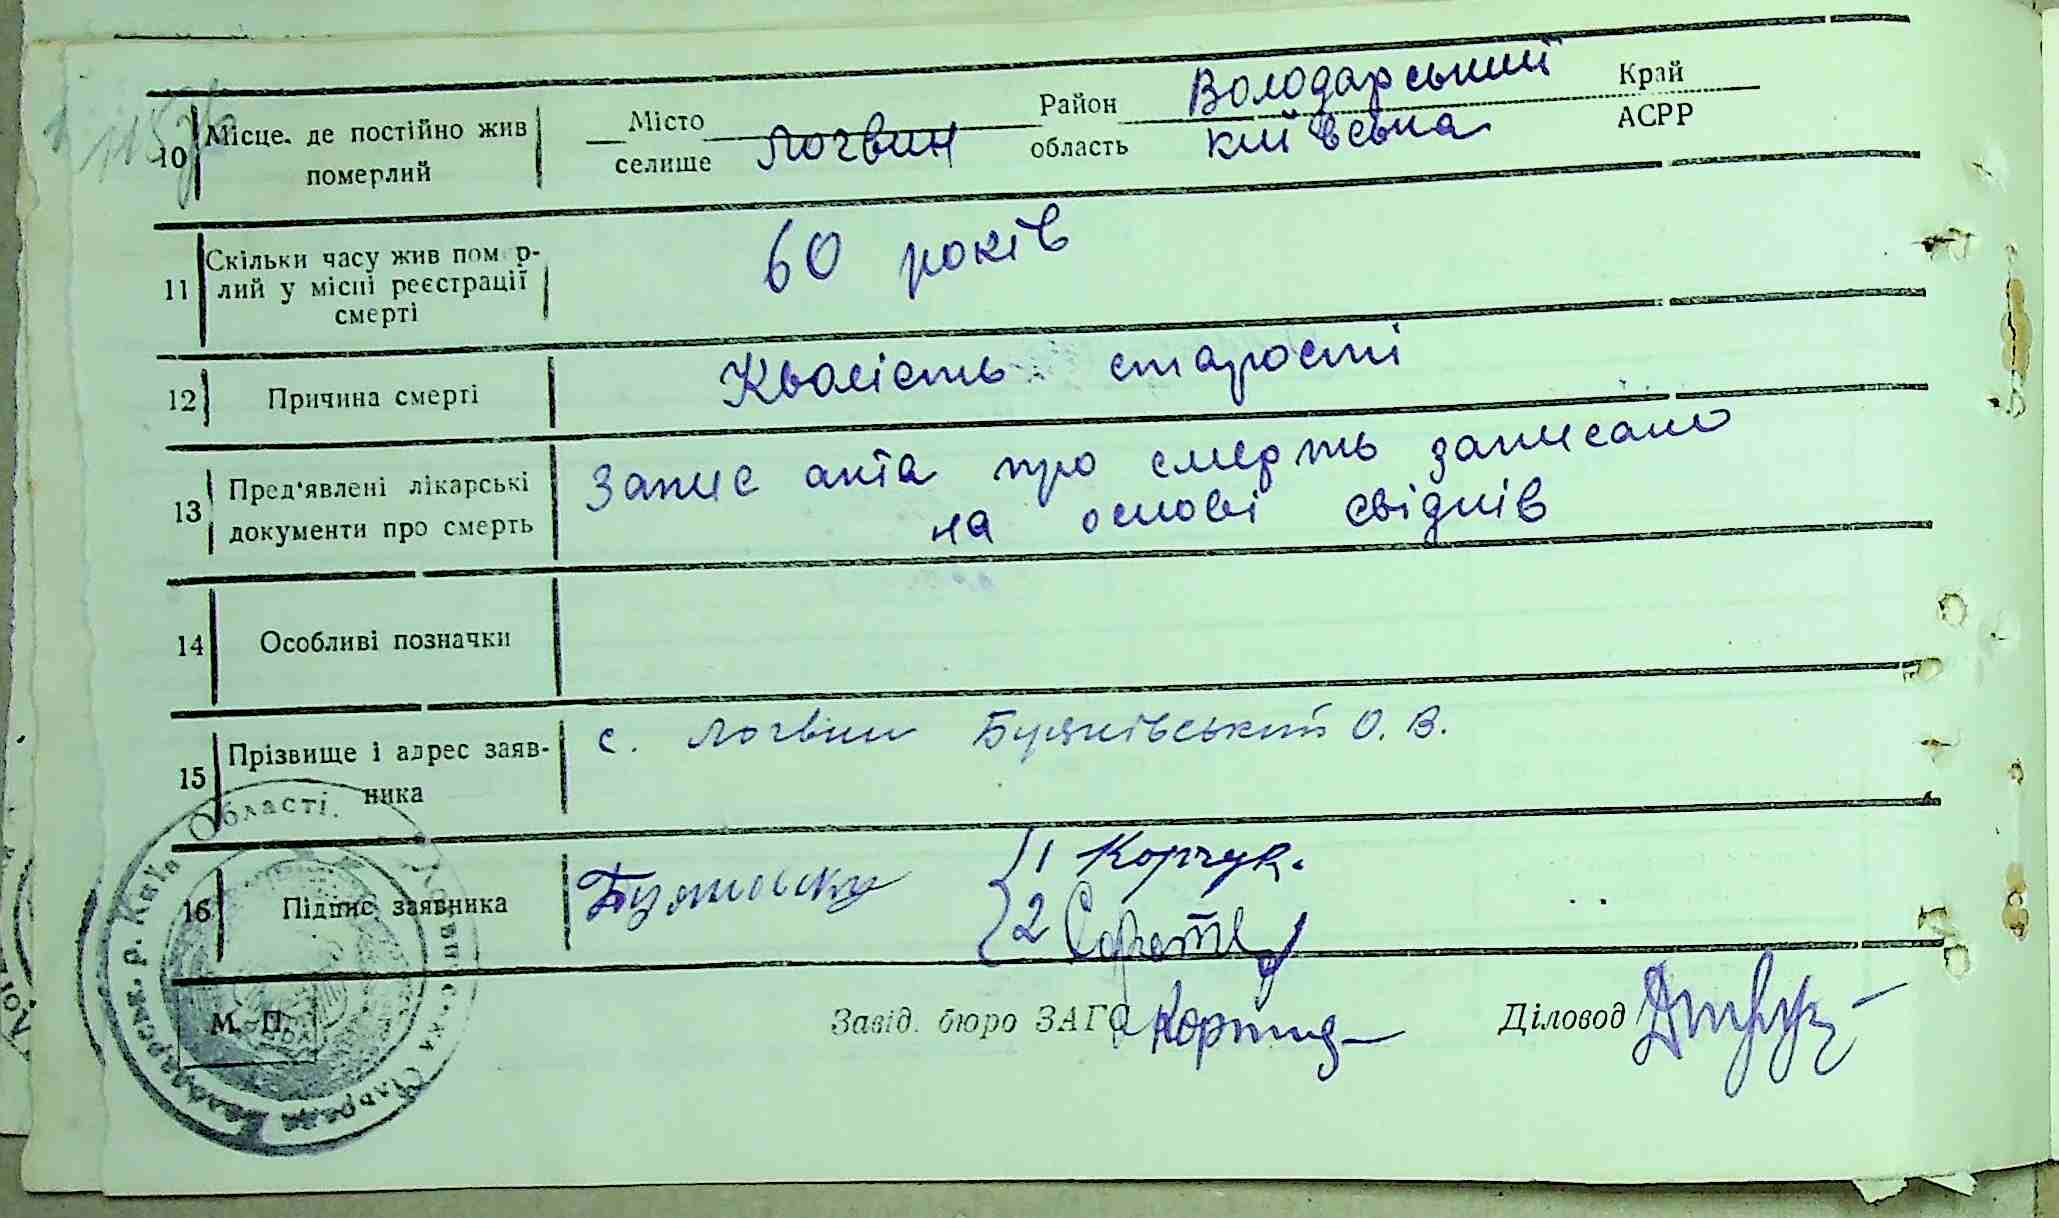 10 Місце. де постійно жив померлий Місто селище Логвин Район Володарський область київська Край АСРР
11 Скільки часу жив пом р-
лий у місці реєстрації
смерті
60 років
12 Причина смерті Кволість старості
13 Пред'явлені лікарські
документи про смерть
Запис акта про смерть записано
на основі свідків
14 Особливі позначки
15 Прізвище і адрес заяв-
ника
с. Логвин Буяківський О. В.
16 Підпис заявника
1 Корчук.
2
М. П.
Завід. бюро ЗАГС Діловод
Області.
Володарськ. р. Київ